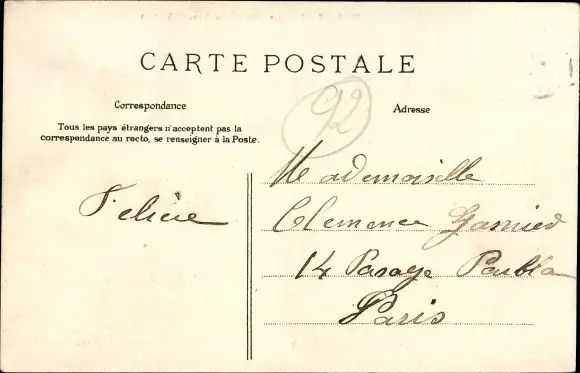 CARTE POSTALE
Correspondance
Adresse
92
Tous les pays étrangers n'acceptent pas la
correspondance au recto, se renseigner à la Poste.
Mademoiselle
Félicie
Clemence
14 Passage
Paris